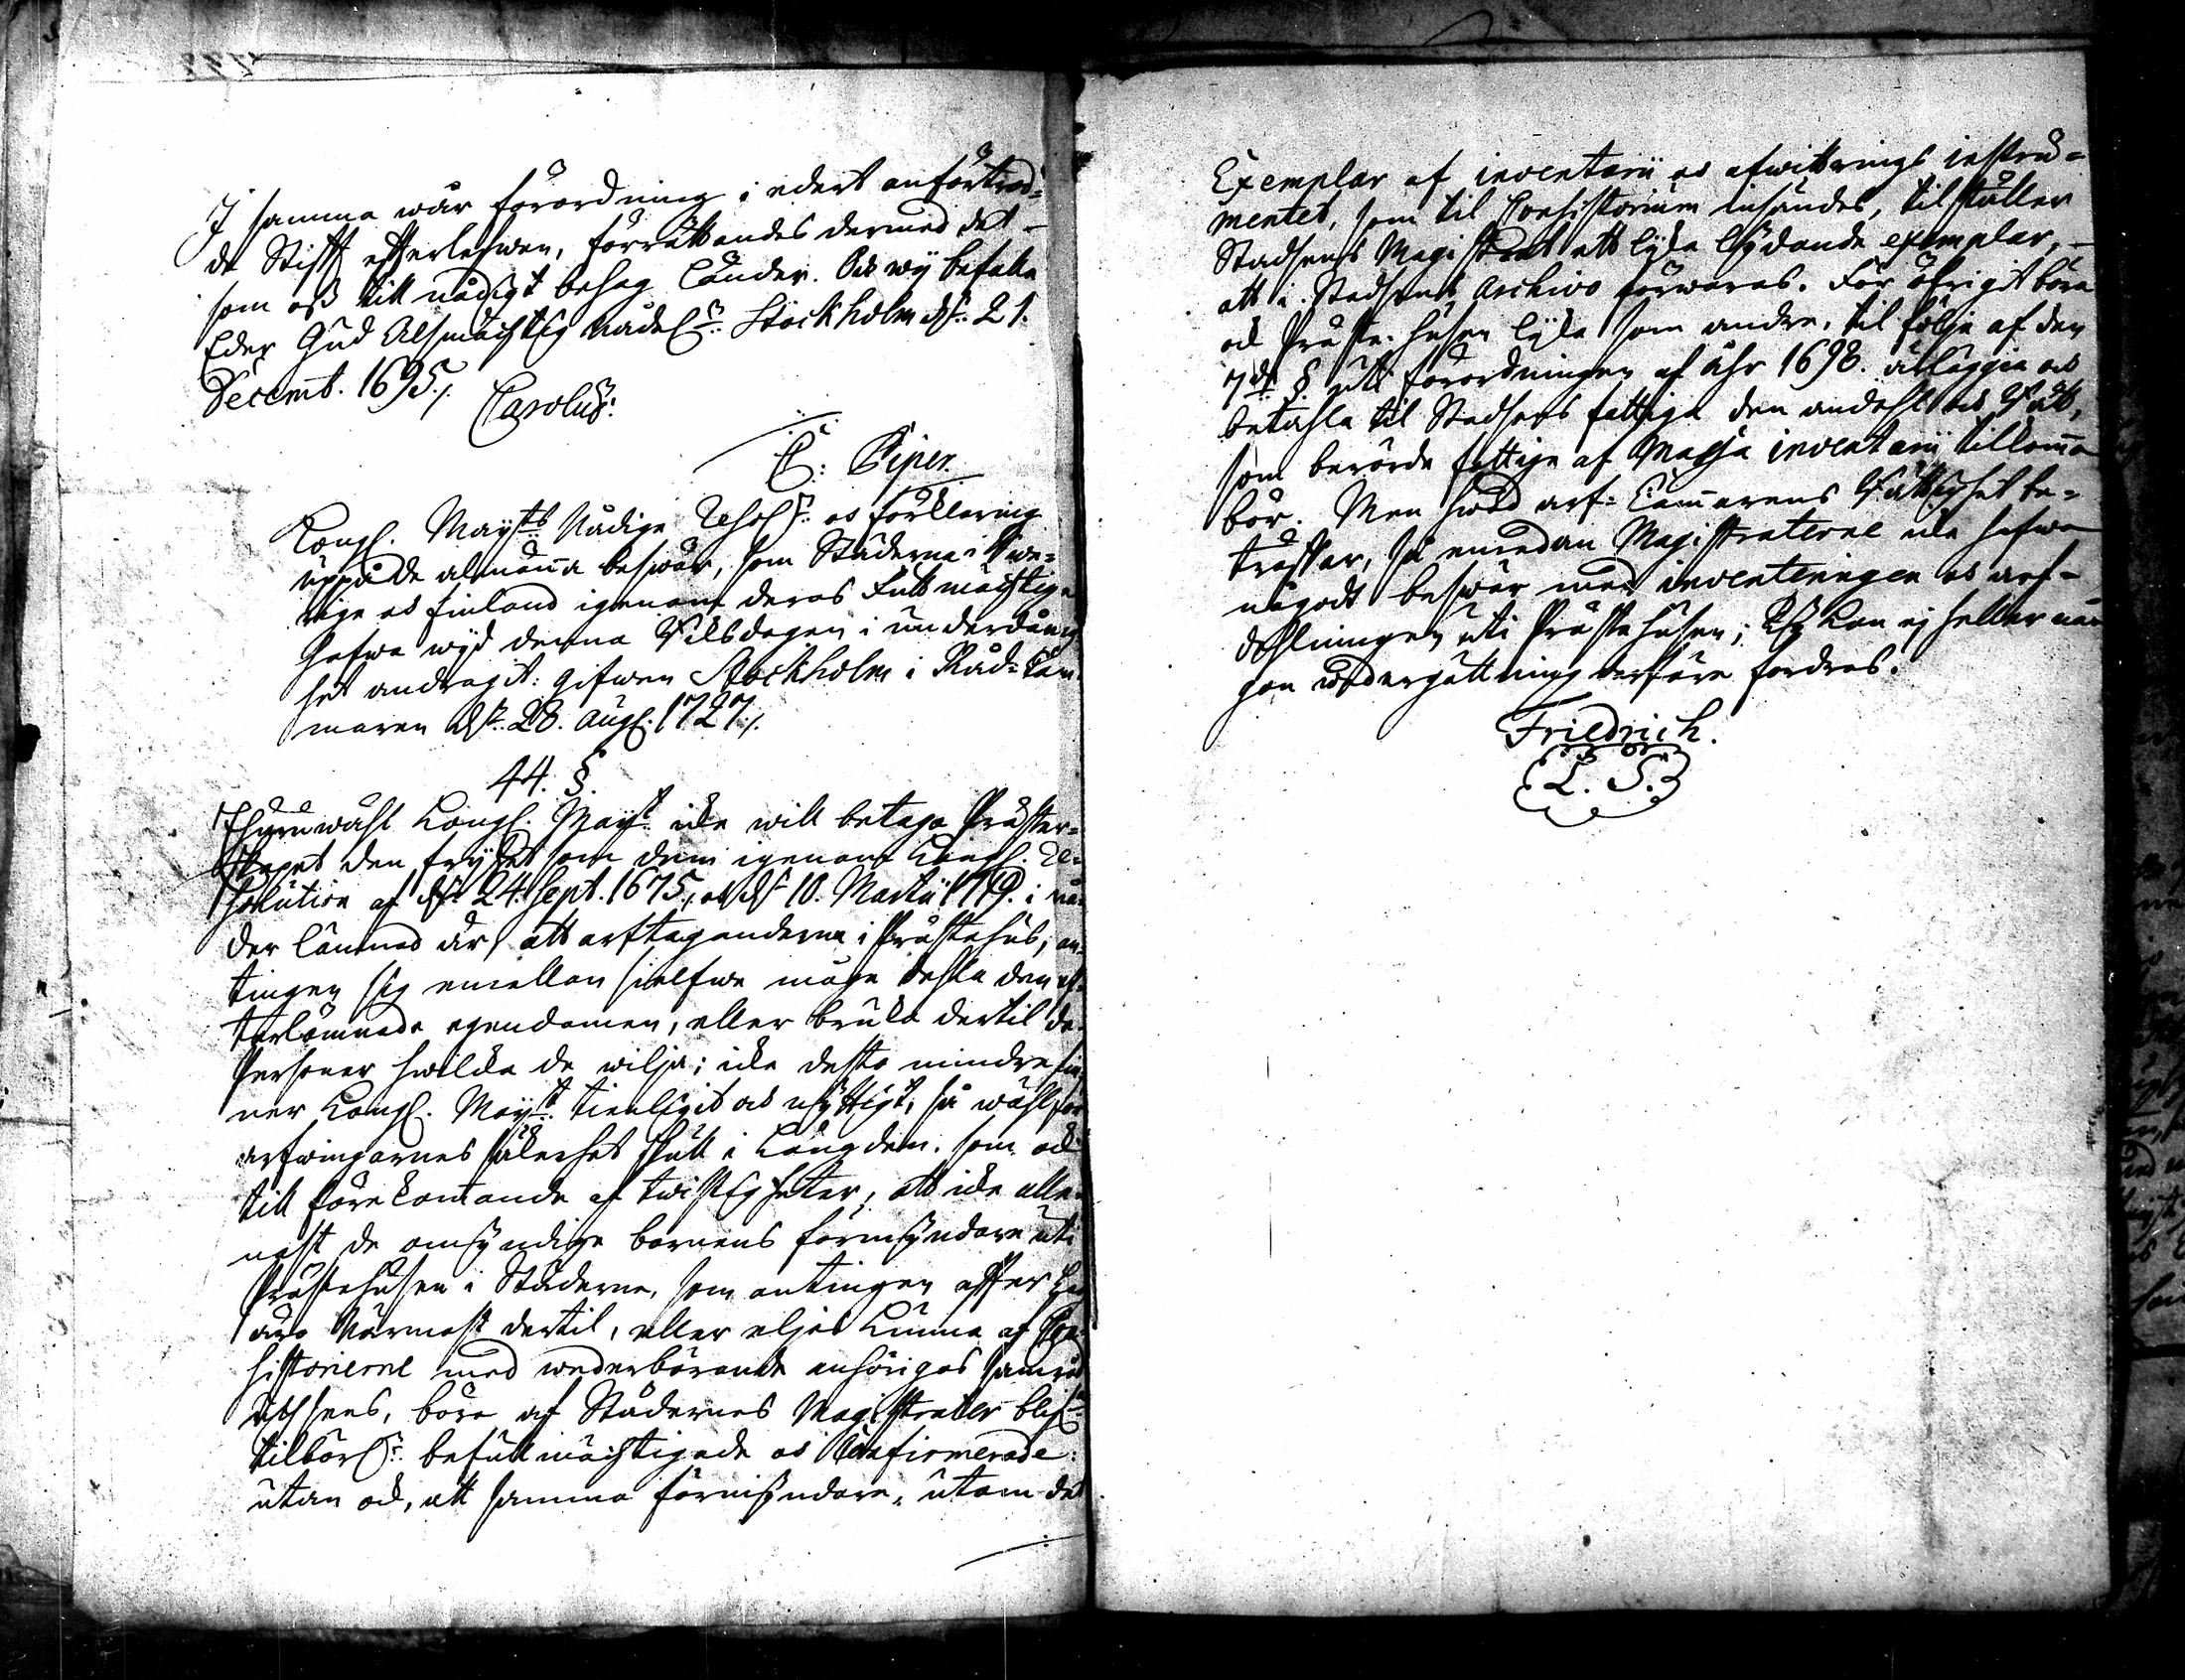 I samma wår förordning i edert anförtrod=
de Stifft efterlefwen, förrättandes dermed det
som oss till nådigt behag länder. Och wij befalle
Eder Gud Alsmächtig nådel:n Stockholm d: 21.
Decemb. 1695./.
Carolus:
C: Piper.
Kongl. Maij:ts Nådige Resol:n och förklaring
uppå de almänna beswär, som Städerne i Swe=
rige och Finland igenom deras Fullmächtige
hafwa wijd denna Riksdagen i underdånig
het andragit: gifwen Stockholm i Råd=Cam
maren d: 28. Aug. 1727./.
44. §.
Ehuruwähl Kongl. Maij:t icke will betaga Präster=
skapet den frijhet som dem igenom Kongl. Re=
solution af d: 24. Sept. 1675, och d: 10. Martii 1719. i nå=
der lämnad är, att arftaganderne i Prästehus, an=
tingen sig emellan sielfwe måge dehla den ef=
terlämnade egendomen, eller bruka dertil de
Personer hwilcka de wilja; icke desto mindre fin
ner Kongl. Maij:t tienligit och nyttigt, så wähl för
arfwingarnes säkerhet skull i Längden, som ock
till förekommande af twistigheter, att icke alle=
nast de omyndige barnens förmyndare uti
Prästehusen i Städerne, som antingen efter Lag
äro närmast dertil, eller eljes kunna af Con=
sistorierne med wederbörande anhöriges samråd
utsees, böra af Städernes Magistrater blif:a
tilbörl:n befullmächtigade och Confirmerade:
utan ock, att samma förmyndare, utom det
Exemplar af inventarii och afwittrings instru=
mentet, som til Consistorium insändes, tilställer
Stadsens Magistrat ett lijka lydande exemplar,
att i Stadsens Archivo förwaras. För öfrigit böra
ock Prästehusen lijka som andre, til följe af den
7:de § uti förordningen af åhr 1698. afläggia och
betahla til Stadsens fattiga den andehl och Rätt,
som berörde fattige af Massa inventarii tilkomma
bör. Men hwad arf=Cammarens Rättighet be=
träffar, så emedan Magistraterne icke hafwa
någodt beswär med inventeringen och arf=
dehlningen uti Prästehusen; Ty kan ej heller nå=
gon wedergällning derföre fordras.
Friedrich.
L. S.